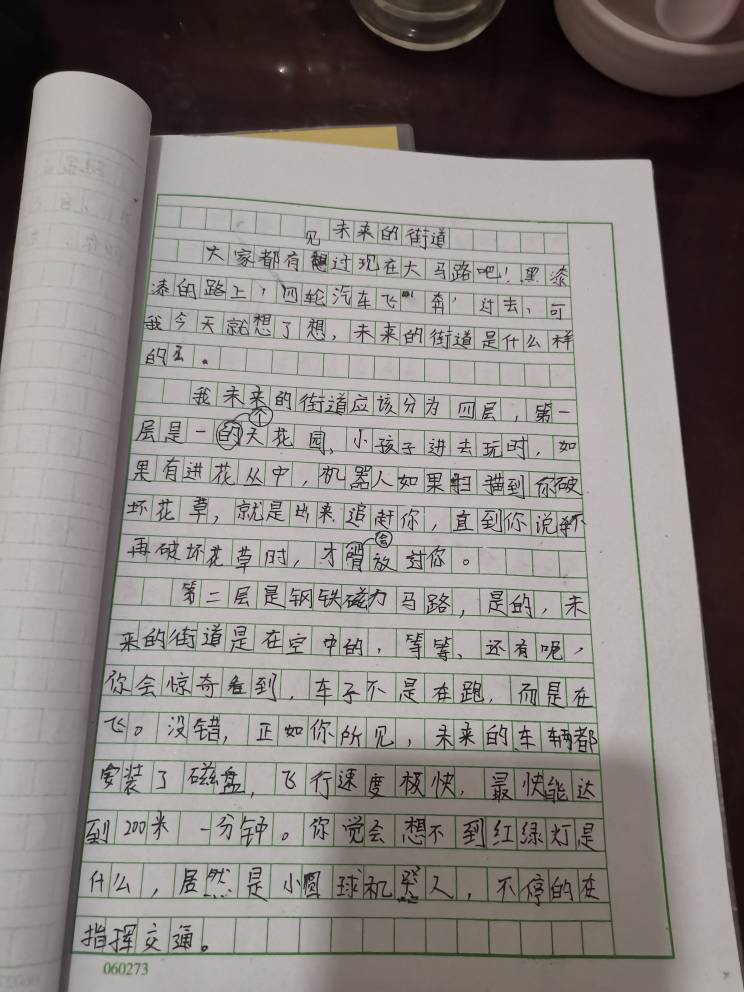 见 未来的街道
大家都有想过现在大马路吧！黑漆
漆的路上，四轮汽车飞奔过去、可
我今天就想了想，未来的街道是什么样
的
我未来的街道应该分为四层，第一
层是一个的天花园，小孩子进去玩时，如
果有进花丛中，机器人如果扫猫到你破
坏花草，就是出来追赶你，直到你说
再破坏花草时，才会放过你。
第二层是钢铁磁力马路，是的，未
来的街道是在空中的，等等、还有呢，
你会惊奇看到，车子不是在跑，而是在
飞。没错，正如你所见，未来的车辆都
安装了磁盘，飞行速度极快，最快能达
到200米一分钟。你觉会想不到红绿灯是
什么，居然是小圆球机器人，不停的在
指挥交通。
060273